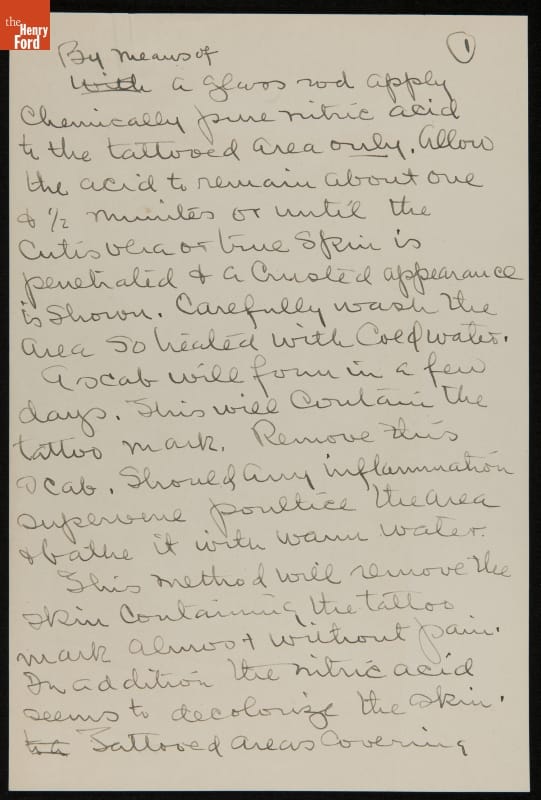 the
Henry
Ford
1
By means of
With a glass rod apply
Chemically pure nitric acid
to the tattooed area only. Allow
the acid to remain about one
& 1/2 minites or until the
Cutis vera or true skin is
penetrated & a Crusted appearance
is shown. Carefully wash the
area so heated with Cold water.
A scab will form in a few
days. This will Contain the
tattoo mark. Remove this
scab. Should any inflammation
supervene poultice the area
& bathe it with warm water.
This method will remove the
skin Containing the tattoo
mark almost without pain.
In addition the nitric acid
seems to decolorize the skin.
Tattooed areas Covering